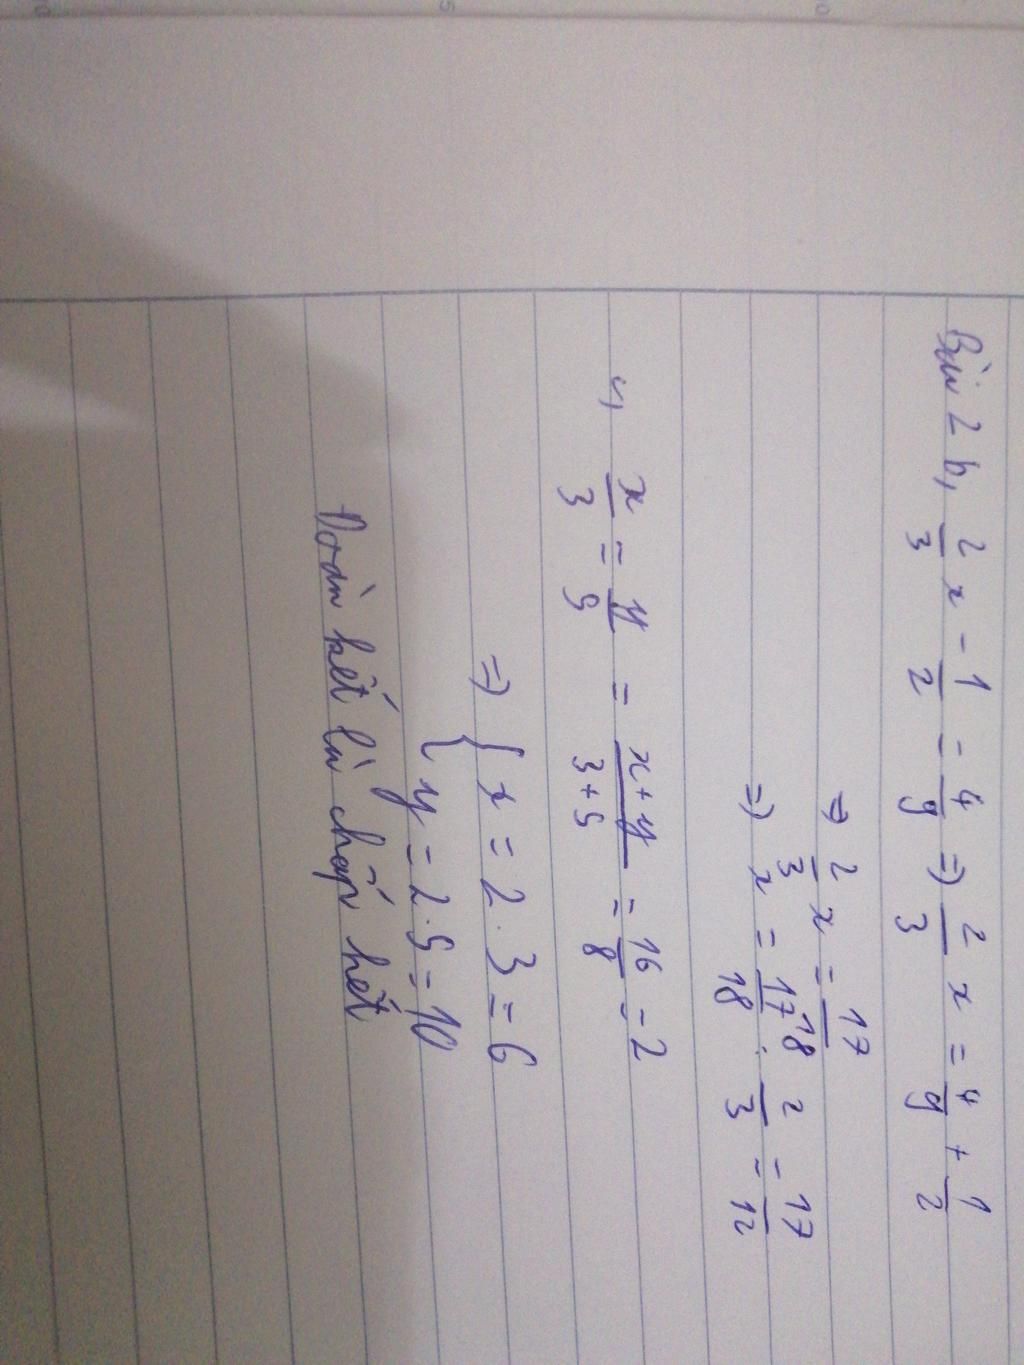 Bài 2 b, 2/3 x - 1/2 = 4/9 => 2/3 x = 4/9 + 1/2
=> 2/3 x = 17/18
=> x = 17/18 : 2/3 = 17/12
c, x/3 = y/5 = x+y/3+5 = 16/8 = 2
=> { x = 2 . 3 = 6
y = 2 . 5 = 10
Đoàn kết là chấp hết